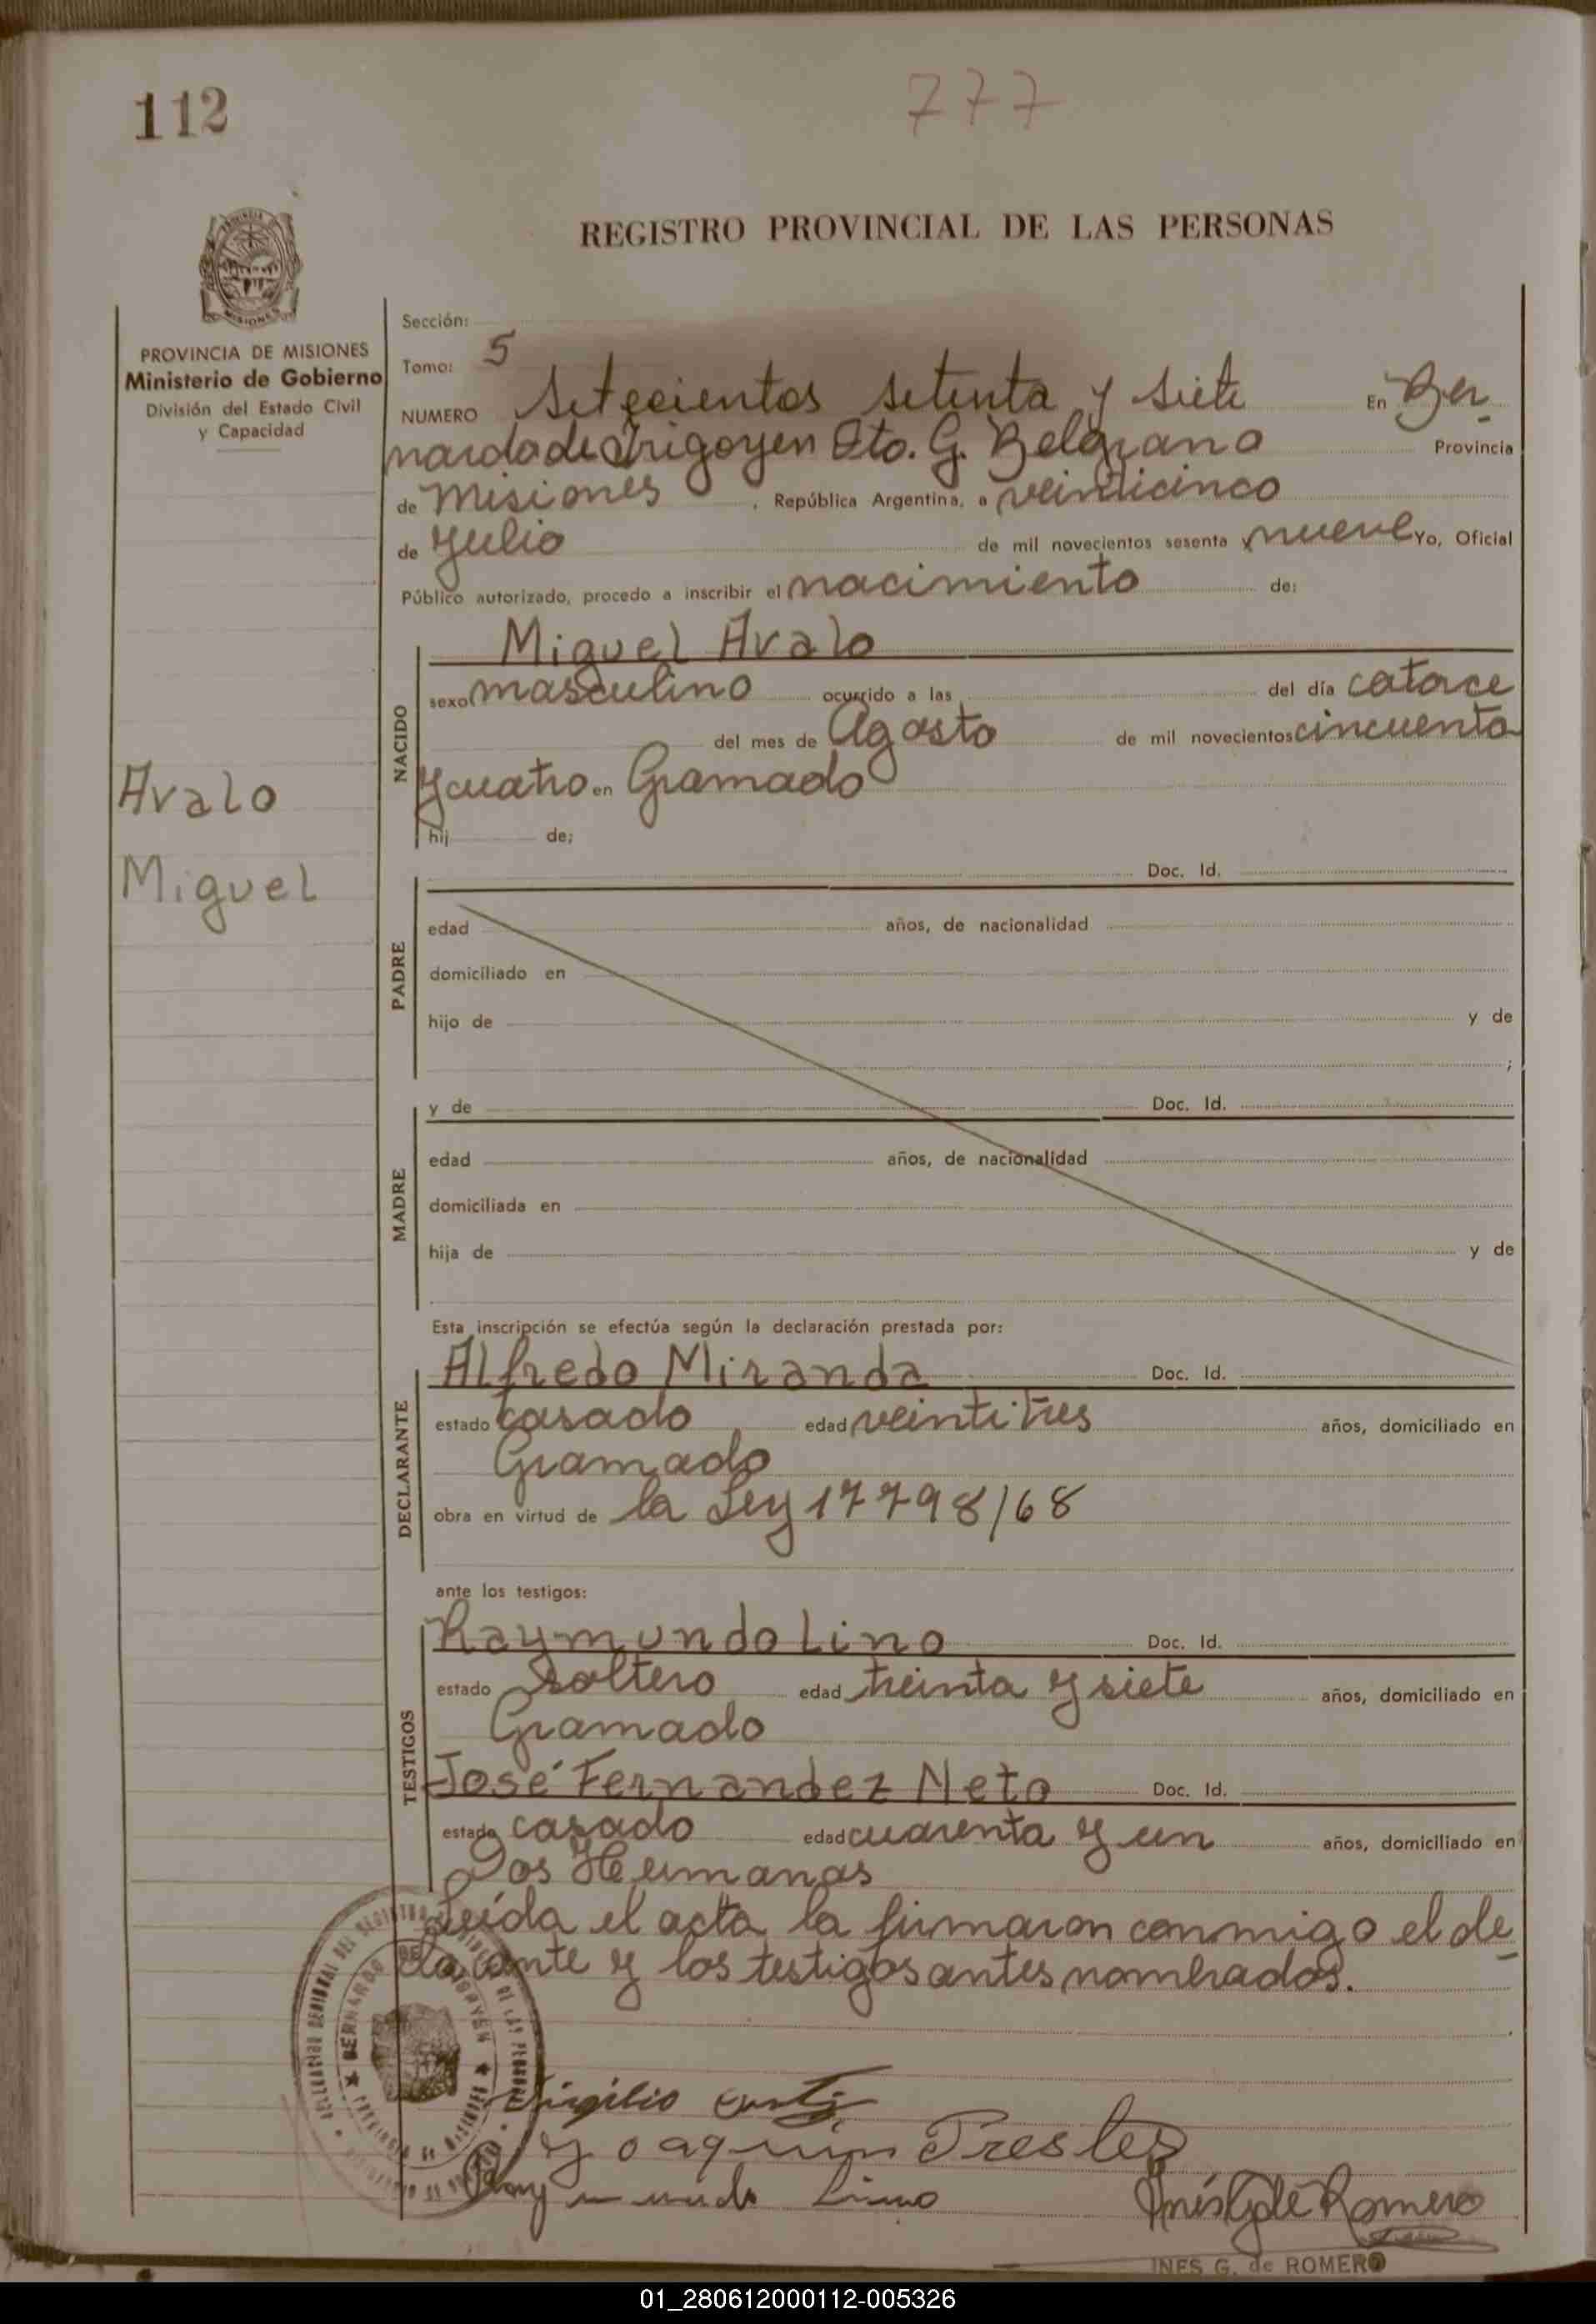 112
777
REGISTRO PROVINCIAL DE LAS PERSONAS
MISIONES
PROVINCIA DE MISIONES
Ministerio de Gobierno
División del Estado Civil
y Capacidad
Avalo
Miguel
Sección:
Tomo: 5
NUMERO Setecientos setenta y siete En Ber
nardo de Irigoyen Dto. G. Belgrano Provincia
de Misiones, República Argentina, a veinticinco
de Julio de mil novecientos sesenta y nueve Yo, Oficial
Público autorizado, procedo a inscribir el nacimiento de:
NACIDO
Miguel Avalo
sexo masculino ocurrido a las del día catorce
del mes de Agosto de mil novecientos cincuenta
y cuatro en Gramado
hij de;
PADRE
Doc. Id.
edad años, de nacionalidad
domiciliado en
hijo de y de
;
MADRE
y de Doc. Id.
edad años, de nacionalidad
domiciliada en
hija de y de
Esta inscripción se efectúa según la declaración prestada por:
DECLARANTE
Alfredo Miranda Doc. Id.
estado casado edad veinti tres años, domiciliado en
Gramado
obra en virtud de la Ley 17798/68
ante los testigos:
TESTIGOS
Raymundo Lino Doc. Id.
estado soltero edad treinta y siete años, domiciliado en
Gramado
José Fernandez Neto Doc. Id.
estado casado edad cuarenta y un años, domiciliado en
Dos Hermanas
Leída el acta la firmaron conmigo el de
clarante y los testigos antes nombrados.
BERNARDO DE IRIGOYEN
Virgilio
Joaquin Prestes
Raymundo Lino
Inés G de Romero
INES G. de ROMERO
01_280612000112-005326